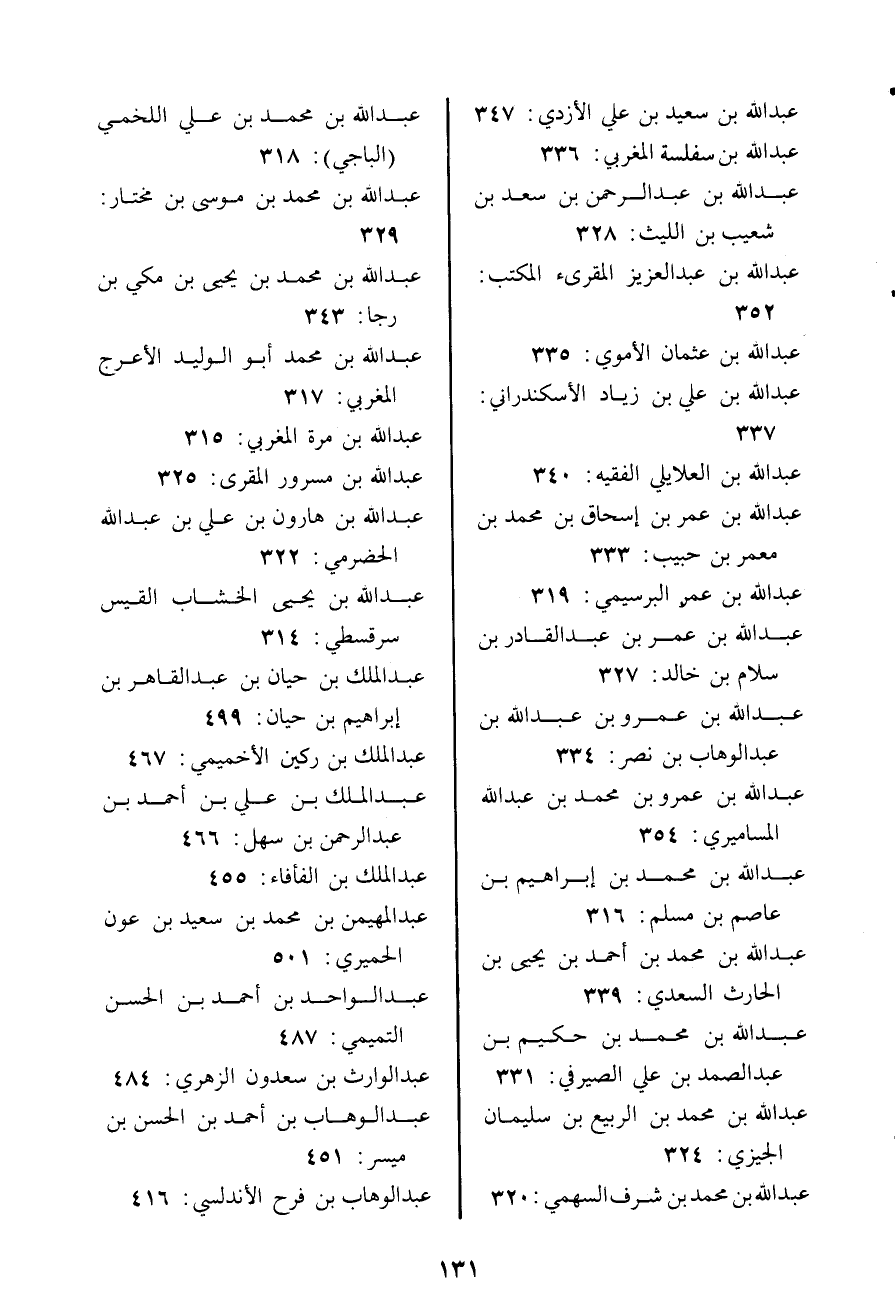 عبدالله بن سعيد بن علي الأزدي: ٣٤٧
عبدالله بن سفلسة المغربي: ٣٣٦
عبدالله بن عبدالرحمن بن سعد بن
شعيب بن الليث: ٣٢٨
عبدالله بن عبدالعزيز المقرىء المكتب:
٣٥٢
عبدالله بن عثمان الأموي: ٣٣٥
عبدالله بن علي بن زياد الأسكندراني:
٣٣٧
عبدالله بن العلايلي الفقيه: ٣٤٠
عبدالله بن عمر بن إسحاق بن محمد بن
معمر بن حبيب: ٣٣٣
عبدالله بن عمر البرسيمي: ٣١٩
عبدالله بن عمر بن عبدالقادر بن
سلام بن خالد: ٣٢٧
عبدالله بن عمرو بن عبدالله بن
عبدالوهاب بن نصر: ٣٣٤
عبدالله بن عمرو بن محمد بن عبدالله
المساميري: ٣٥٤
عبدالله بن محمد بن إبراهيم بن
عاصم بن مسلم: ٣١٦
عبدالله بن محمد بن أحمد بن يحيى بن
الحارث السعدي: ٣٣٩
عبدالله بن محمد بن حكيم بن
عبدالصمد بن علي الصيرفي: ٣٣١
عبدالله بن محمد بن الربيع بن سليمان
الجيزي: ٣٢٤
عبدالله بن محمد بن شرف السهمي: ٣٢٠
عبدالله بن محمد بن علي اللخمي
(الباجي): ٣١٨
عبدالله بن محمد بن موسى بن مختار:
٣٢٩
عبدالله بن محمد بن يحيى بن مكي بن
رجا: ٣٤٣
عبدالله بن محمد أبو الوليد الأعرج
المغربي: ٣١٧
عبدالله بن مرة المغربي: ٣١٥
عبدالله بن مسرور المقرى: ٣٢٥
عبدالله بن هارون بن علي بن عبدالله
الحضرمي: ٣٢٢
عبدالله بن يحيى الخشاب القيس
سرقسطي: ٣١٤
عبدالملك بن حيان بن عبدالقاهر بن
إبراهيم بن حيان: ٤٩٩
عبدالملك بن ركين الأخميمي: ٤٦٧
عبدالملك بن علي بن أحمد بن
عبدالرحمن بن سهل: ٤٦٦
عبدالملك بن الفأفاء: ٤٥٥
عبدالمهيمن بن محمد بن سعيد بن عون
الحميري: ٥٠١
عبدالواحد بن أحمد بن الحسن
التميمي: ٤٨٧
عبدالوارث بن سعدون الزهري: ٤٨٤
عبدالوهاب بن أحمد بن الحسن بن
ميسر: ٤٥١
عبدالوهاب بن فرح الأندلسي: ٤١٦
١٣١